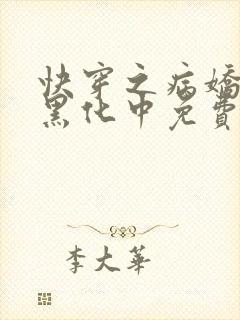 快穿之病嬌
黑化中免費
李大華